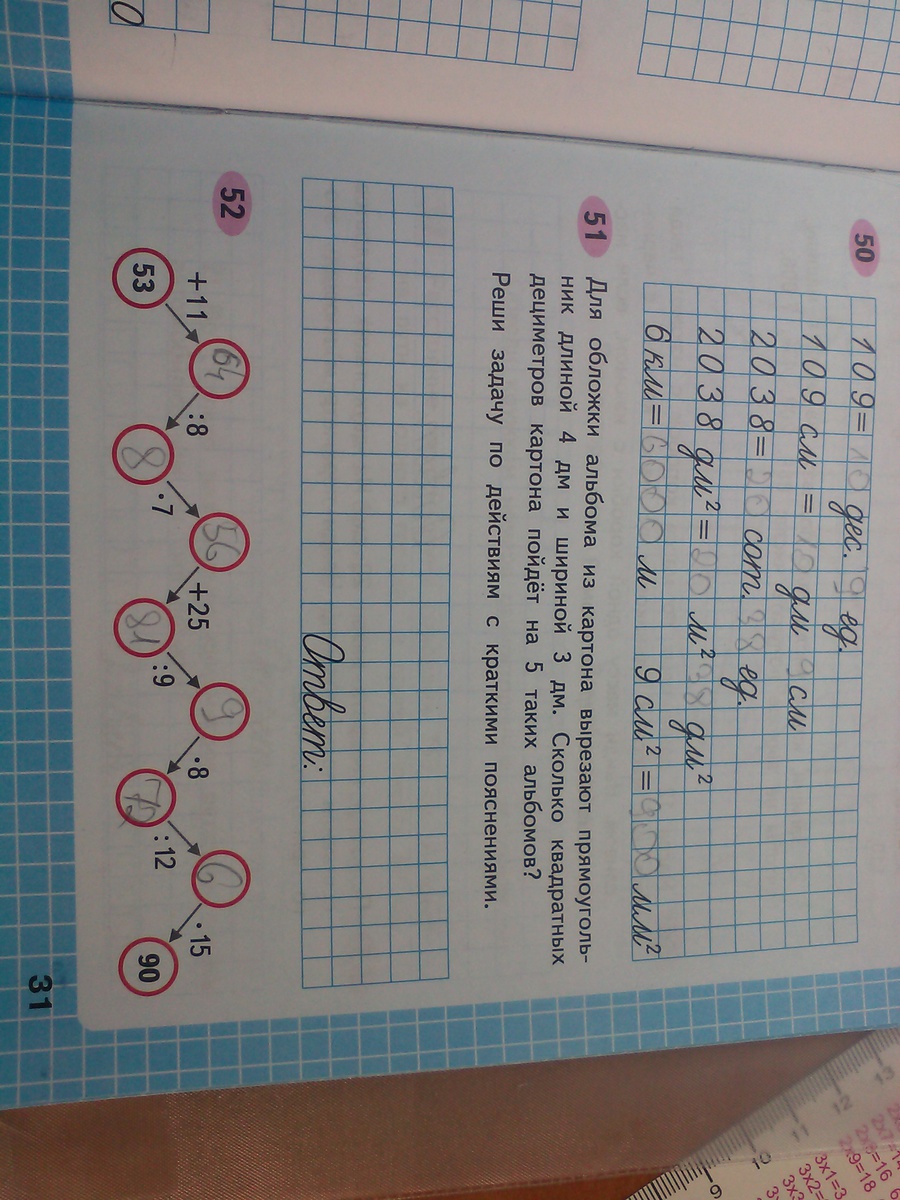 50
109 = 10 дес. 9 ед.
109 см = 10 дм 9 см
2038 = 20 сот. 38 ед.
2038 дм² = 20 м² 38 дм²
6 км = 6000 м 9 см² = 900 мм²
51 Для обложки альбома из картона вырезают прямоуголь-
ник длиной 4 дм и шириной 3 дм. Сколько квадратных
дециметров картона пойдёт на 5 таких альбомов?
Реши задачу по действиям с краткими пояснениями.
Ответ:
52
+11 64 :8 56 +25 9 ·8 6 ·15
53 8 ·7 81 :9 72 :12 90
31
0
13
12
11
10
9
2x7=14
2x8=16
2x9=18
3x1=3
3x2=